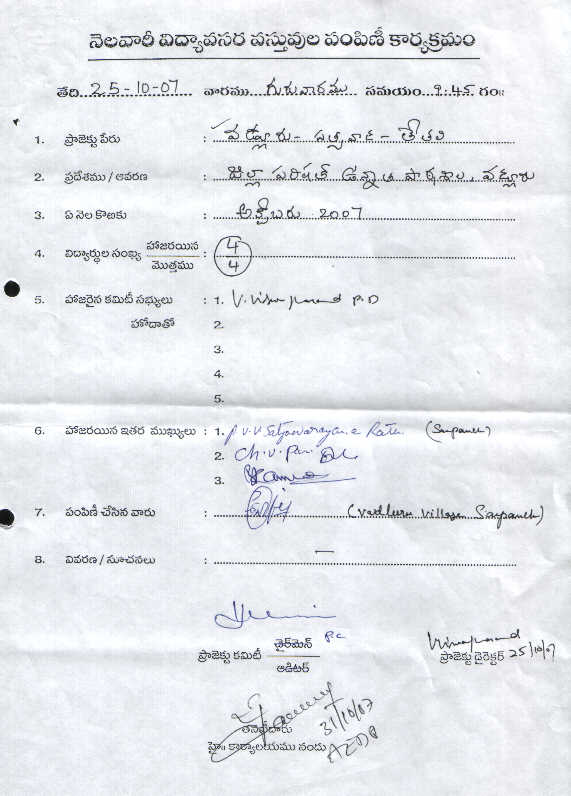 నెలవారీ విద్యావసర వస్తువుల పంపిణీ కార్యక్రమం
తేది 25-10-07 వారము గురువారము సమయం 9:45 గం॥
1. ప్రాజెక్టు పేరు :
2. ప్రదేశము / ఆవరణ : జిల్లా పరిషత్ ఉన్నత పాఠశాల, వడ్లూరు
3. ఏ నెల కొఱకు : అక్టోబరు 2007
4. విద్యార్థుల సంఖ్య హాజరయిన / మొత్తము : 4/4
5. హాజరైన కమిటీ సభ్యులు : 1. V. P.D
హోదాతో 2.
3.
4.
5.
6. హాజరయిన ఇతర ముఖ్యులు : 1. P.V.V Satyanarayana Raju (Sarpanch)
2. Ch.V.
3.
7. పంపిణీ చేసిన వారు : (Vadluru Village Sarpanch)
8. వివరణ / సూచనలు : —
ప్రాజెక్టు కమిటీ ఛైర్‌మెన్ / ఆడిటర్ P.C
ప్రాజెక్టు డైరెక్టర్ 25/10/07
31/10/07
తనిఖీదారు
హై॥ కార్యాలయము నందు